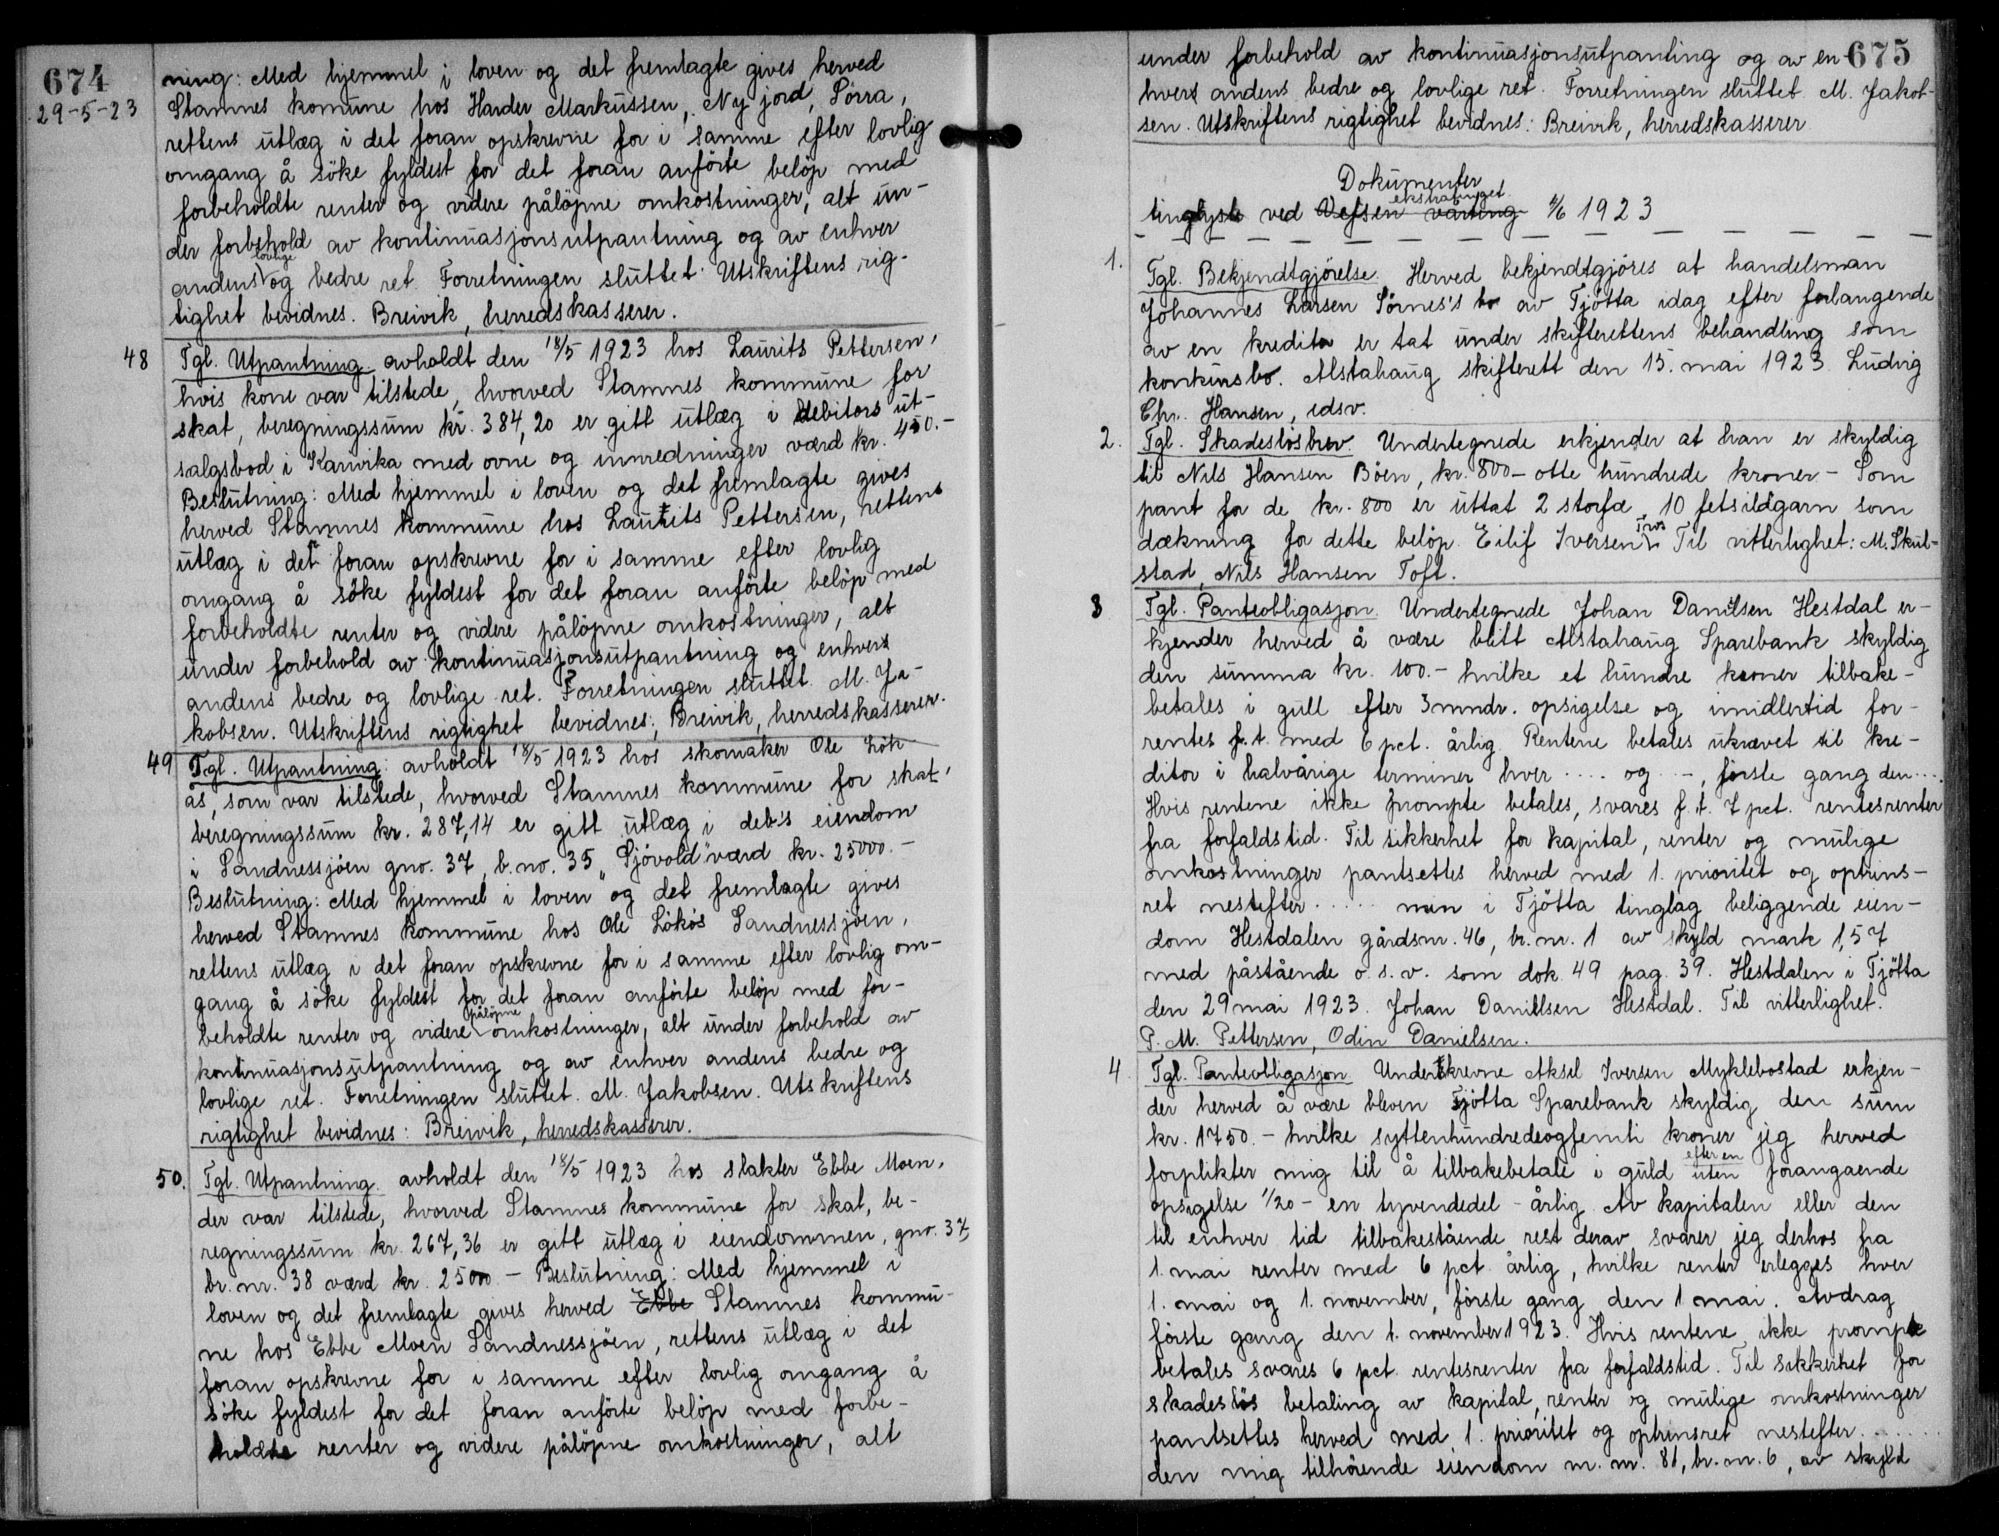 674
29-5-23
ning: Med hjemmel i loven og det fremlagte gives herved
Stamnes komune hos Harder Markussen, Ny jord, Sörra,
rettens utlæg i det foran opskrevne for i samme efter lovlig
omgang å söke fyldest for det foran anförte belöp med
forbeholdte renter og videre pålöpne omkostninger, alt un-
der forbehold av kontinuasjonsutpantning og av enhver
andens lovlige og bedre ret. Forretningen sluttet. Utskriftens rig-
tighet bevidnes. Breivik, herredskasserer.
48 Tgl. Utpantning avholdt den 18/5 1923 hos Laurits Pettersen,
hvis kone var tilstede, hvorved Stamnes kommune for
skat, beregningssum kr. 384,20 er gitt utlæg i debitors ut-
salgsbod i Karivika med ovne og innredninger værd kr. 450.-
Beslutning: Med hjemmel i loven og det fremlagte gives
herved Stamnes kommune hos Laurits Pettersen, rettens
utlæg i det foran opskrevne for i samme efter lovlig
omgang å söke fyldest for det foran anförte belöp med
forbeholdte renter og videre pålöpne omkostninger, alt
under forbehold av kontinuasjonsutpantning og enhvers
andens bedre og lovlige ret. Forretningen sluttet. M. Ja-
kobsen. Utskriftens rigtighet bevidnes; Breivik, herredskasserer.
49 Tgl. Utpantning: avholdt 18/5 1923 hos skomaker Ole Lök-
ås, som var tilstede, hvorved Stamnes kommune for skat,
beregningssum kr. 287,14 er gitt utlæg i deb's eiendom
i Sandnessjöen gno. 37, b.no. 35 „Sjövold" værd kr. 25000.-
Beslutning: Med hjemmel i loven og det fremlagte gives
herved Stamnes kommune hos Ole Lökås Sandnessjöen,
rettens utlæg i det foran opskrevne for i samme efter lovlig om-
gang å söke fyldest for det foran anförte belöp med for-
beholdte renter og videre pålöpne omkostninger, alt under forbehold av
kontinuasjonsutpantning og av enhver andens bedre og
lovlige ret. Forretningen sluttet. M. Jakobsen. Utskriftens
rigtighet bevidnes: Breivik, herredskasserer.
50. Tgl. Utpantning. avholdt den 18/5 1923 hos slakter Ebbe Moen,
der var tilstede, hvorved Stamnes kommune for skat, be-
regningssum kr. 267,36 er gitt utlæg i eiendommen, gno. 37,
br. nr. 38 værd kr. 25000 - Beslutning: Med hjemmel i
loven og det fremlagte gives herved Ebbe Stamnes kommu-
ne hos Ebbe Moen Sandnessjöen, rettens utlæg i det
foran opskrevne for i samme efter lovlig omgang å
söke fyldest for det foran anförte belöp med forbe-
holdte renter og videre pålöpne omkostninger, alt
675
under forbehold av kontinuasjonsutpanting og av en-
hvers andens bedre og lovlige ret. Forretningen sluttet. M. Jakob-
sen. Utskriftens rigtighet bevidnes: Breivik, herredskasserer
Dokumenter
tinglyst ved Vefsen vårting 4/6 1923
1. Tgl. Bekjendtgjörelse. Herved bekjendtgjöres at handelsman
Johannes Larsen Sörnes's bo av Tjötta idag efter forlangende
av en kreditor er tat under skifterettens behandling som
konkursbo. Alstahaug skifterett den 15. mai 1923. Ludvig
Chr. Hansen, edsv.
2. Tgl. Skadeslösbrev. Undertegnede erkjender at han er skyldig
til Nils Hansen Böen, kr. 800 - otte hundrede kroner - Som
pant for de kr. 800 er uttat 2 storfæ, 10 fetsildgarn som
dækning for dette belöp. Eilif Iversen Til vitterlighet: M. Skul-
stad, Nils Hansen Toft.
3 Tgl. Panteobligasjon. Undertegnede Johan Danilsen Hestdal er-
kjender herved å være blitt Alstahaug Sparebank skyldig
den summa kr. 100.- hvilke et hundre kroner tilbake-
betales i gull efter 3 mndr. opsigelse og imidlertid for-
rentes f.t. med 6 pct. årlig. Renterne betales ukrævet til kre-
ditor i halvårige terminer hver .... og - , förste gang den ....
Hvis rentene ikke prompte betales, svares f.t. 7 pct. rentesrenter
fra forfaldstid. Til sikkerhet for kapital, renter og mulige
omkostninger pantsettes herved med 1. prioritet og optrins-
ret nestefter ..... min i Tjötta tinglag beliggende eien-
dom Hestdalen gårdsnr. 46, br. nr. 1 av skyld mark 1,57
med påstående o. s. v. som dok. 49 pag. 39. Hestdalen i Tjötta
den 29 mai 1923. Johan Danielsen Hestdal. Til vitterlighet:
P. M. Pettersen, Odin Danielsen.
4. Tgl. Panteobligasjon. Underskrevne Aksel Iversen Myklebostad erkjen-
der herved å være bleven Tjötta Sparebank skyldig den sum
kr. 1750.- hvilke syttenhundredeogfemti kroner jeg herved
forplikter mig til å tilbakebetale i guld efter en uten forangaende
opsigelse 1/20 - en tyvendedel - årlig. Av kapitalen eller den
til enhver tid tilbakestående rest derav svarer jeg derhos fra
1. mai renter med 6 pct. årlig, hvilke renter erlegges hver
1. mai og 1. november, förste gang den 1 mai. Avdrag
förste gang den 1. november 1923. Hvis rentene ikke prompte
betales svares 6 pct. rentesrenter fra forfaldstid. Til sikkerhet for
skadeslös betaling av kapital, renter og mulige omkostninger
pantsettes herved med 1. prioritet og optrinsret nestefter ......
den mig tilhörende eiendom m. nr. 81, br. nr. 6, av skyld